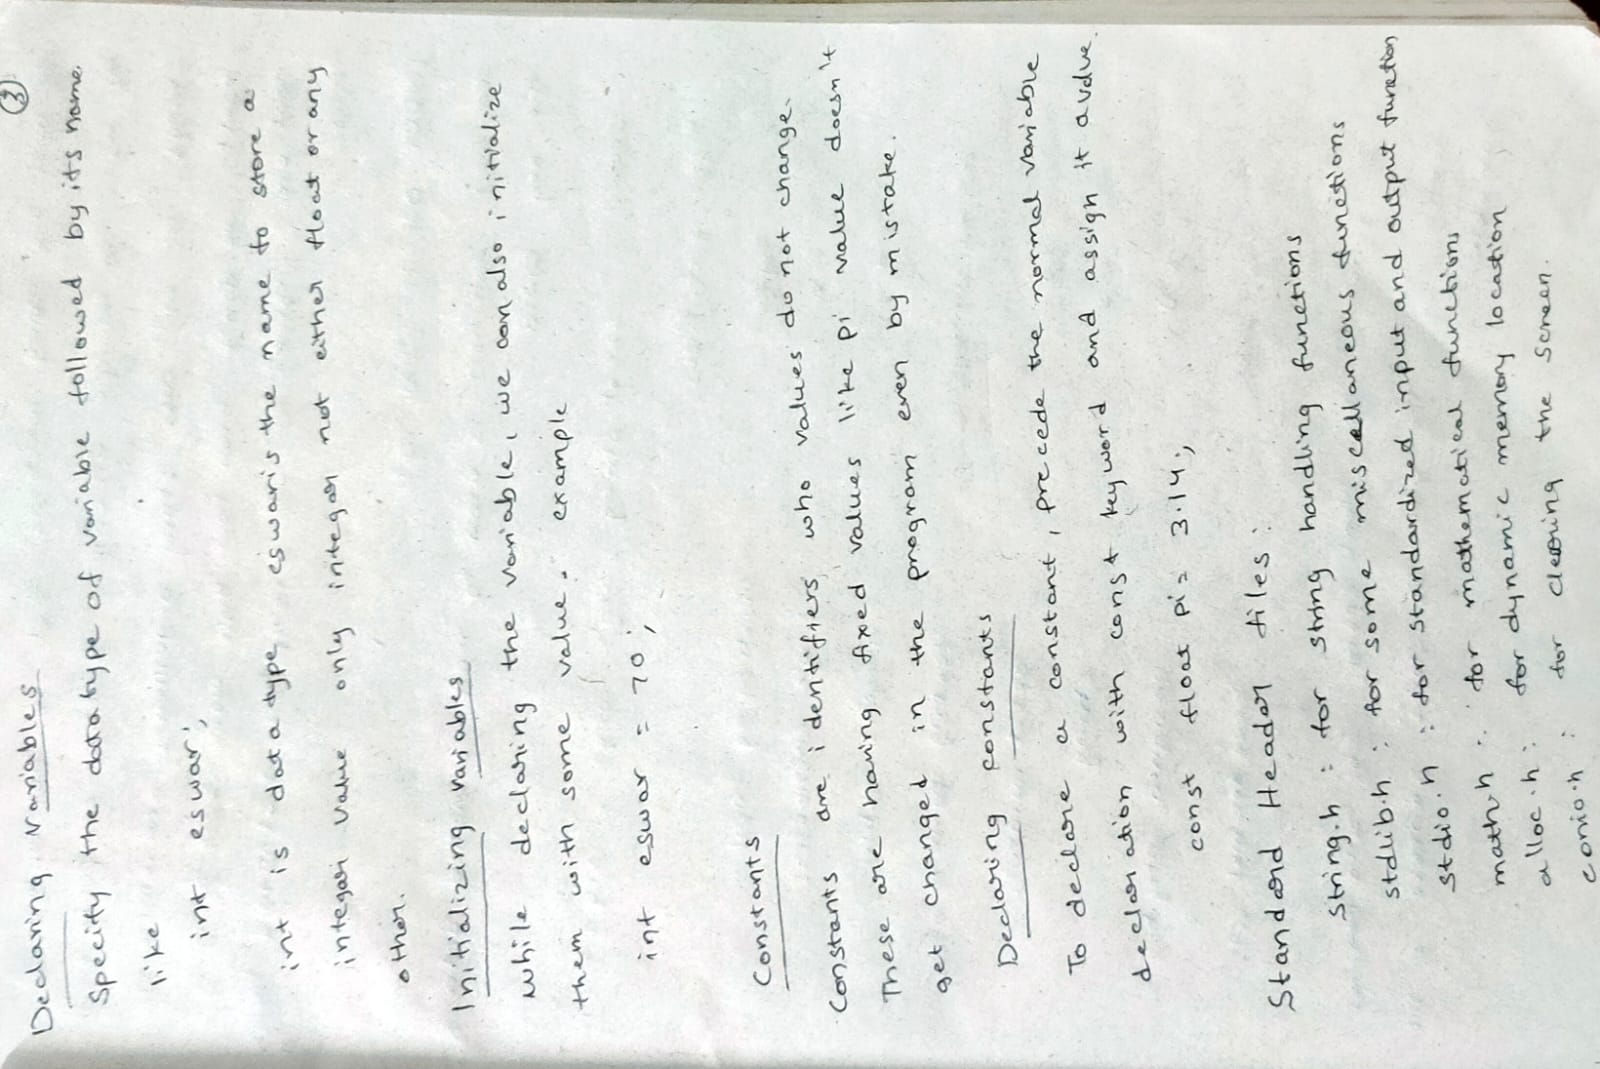 3
Declaring variables
Specify the data type of variable followed by its name.
like
int eswar;
int is data type, eswar is the name to store a
integar value only integar not either float or any
other.
Initializing variables
while declaring the variable, we can also initialize
them with some value. example
int eswar = 70;
Constants
Constants are identifiers who values do not change.
These are having fixed values like pi value doesn't
get changed in the program even by mistake.
Declaring constants
To declare a constant, precede the normal variable
declaration with const keyword and assign it a value.
const float pi = 3.14;
Standard Header files :
String.h : for string handling functions
stdlib.h : for some miscellaneous functions
stdio.h : for standardized input and output function
math.h : for mathematical functions
alloc.h : for dynamic memory location
conio.h : for clearing the screen.